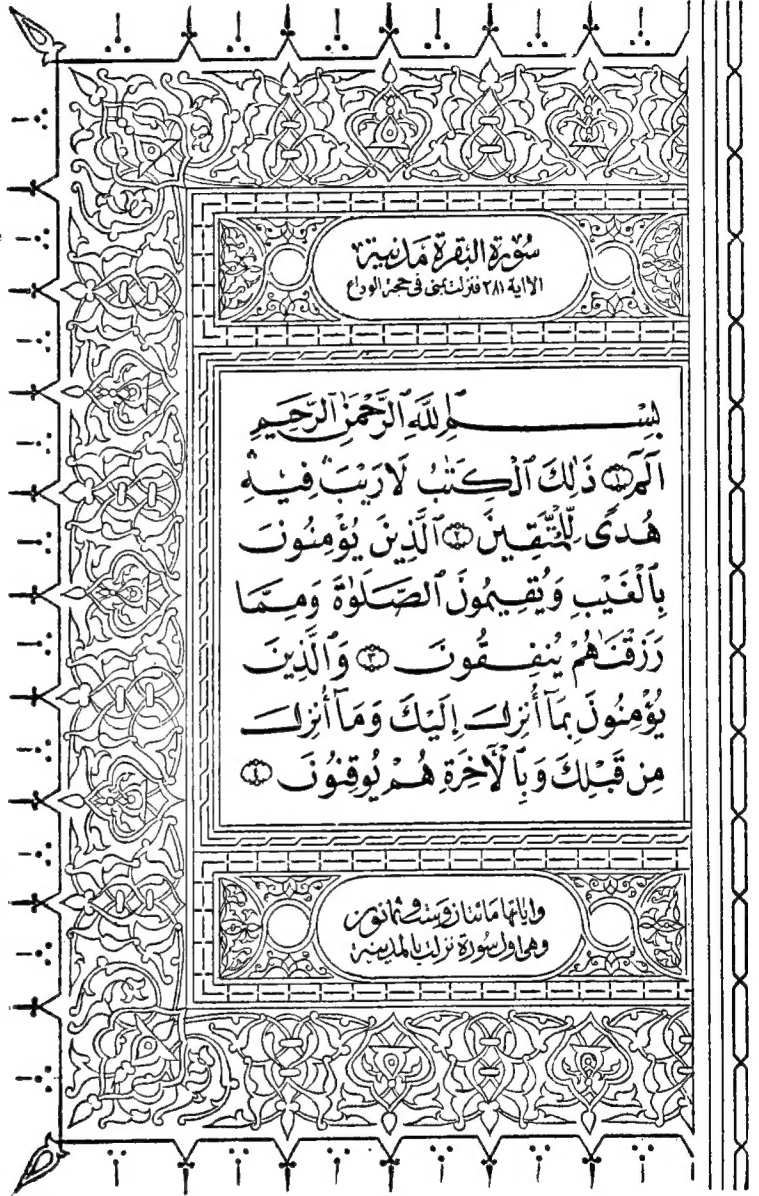 سُورَة البَقَرة مَدَنِية
الا اية ٢٨١ فنزلت بمنى في حجة الوداع
بِسْمِ ٱللَّهِ ٱلرَّحْمَٰنِ ٱلرَّحِيمِ
الٓمٓ ١ ذَٰلِكَ ٱلْكِتَٰبُ لَا رَيْبَ ۛ فِيهِ ۛ
هُدًى لِّلْمُتَّقِينَ ٢ ٱلَّذِينَ يُؤْمِنُونَ
بِٱلْغَيْبِ وَيُقِيمُونَ ٱلصَّلَوٰةَ وَمِمَّا
رَزَقْنَٰهُمْ يُنفِقُونَ ٣ وَٱلَّذِينَ
يُؤْمِنُونَ بِمَآ أُنزِلَ إِلَيْكَ وَمَآ أُنزِلَ
مِن قَبْلِكَ وَبِٱلْأَخِرَةِ هُمْ يُوقِنُونَ ٤
واياتها مائتان وست وثمانون
وهى اول سُورة نزلت بالمدينة